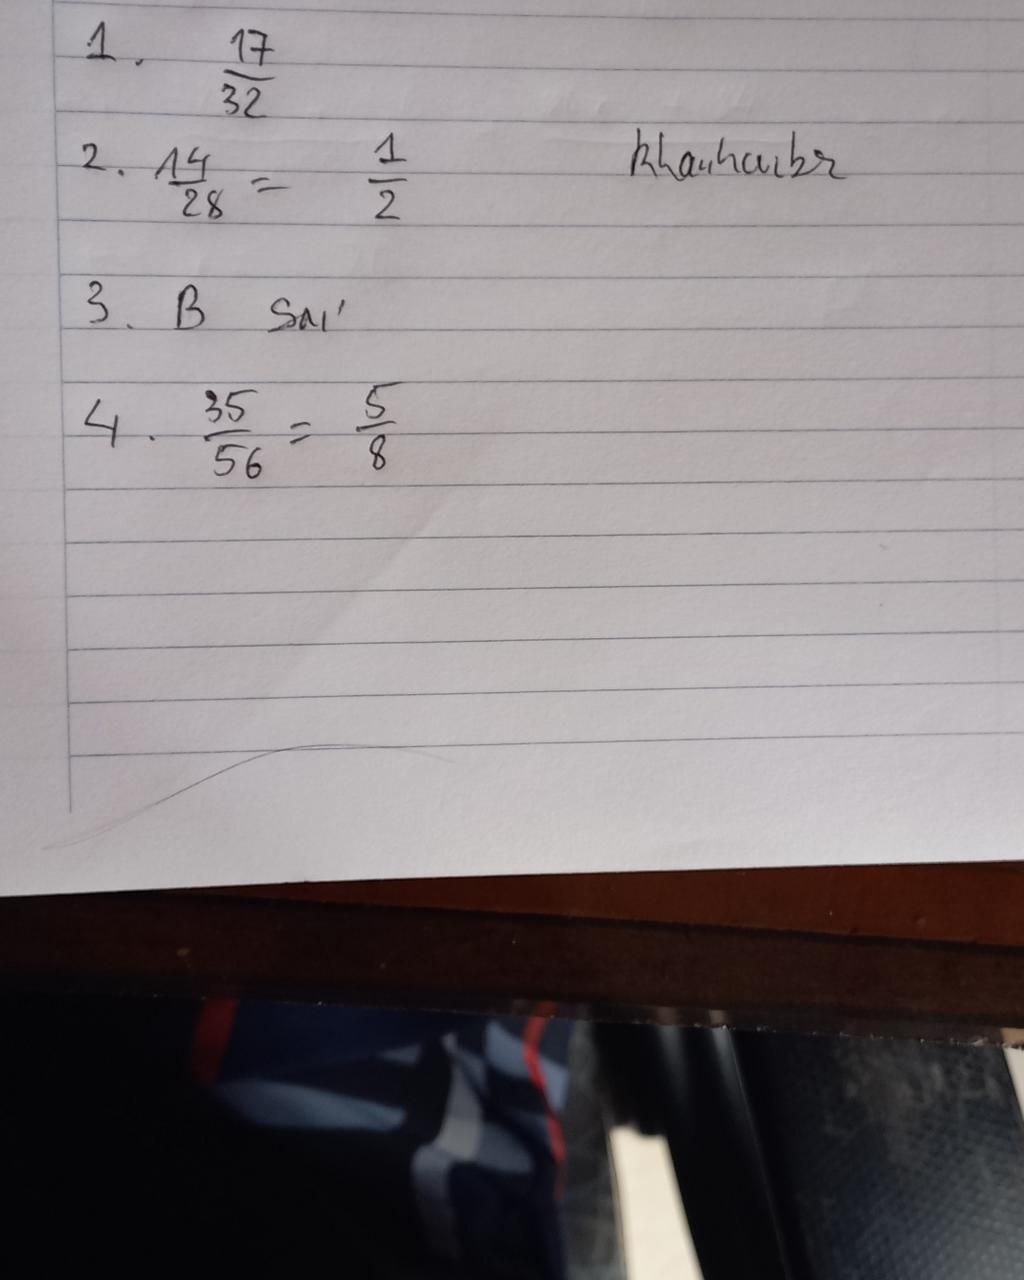 1. 17/32
2. 14/28 = 1/2 khanhcuber
3. B Sai
4. 35/56 = 5/8